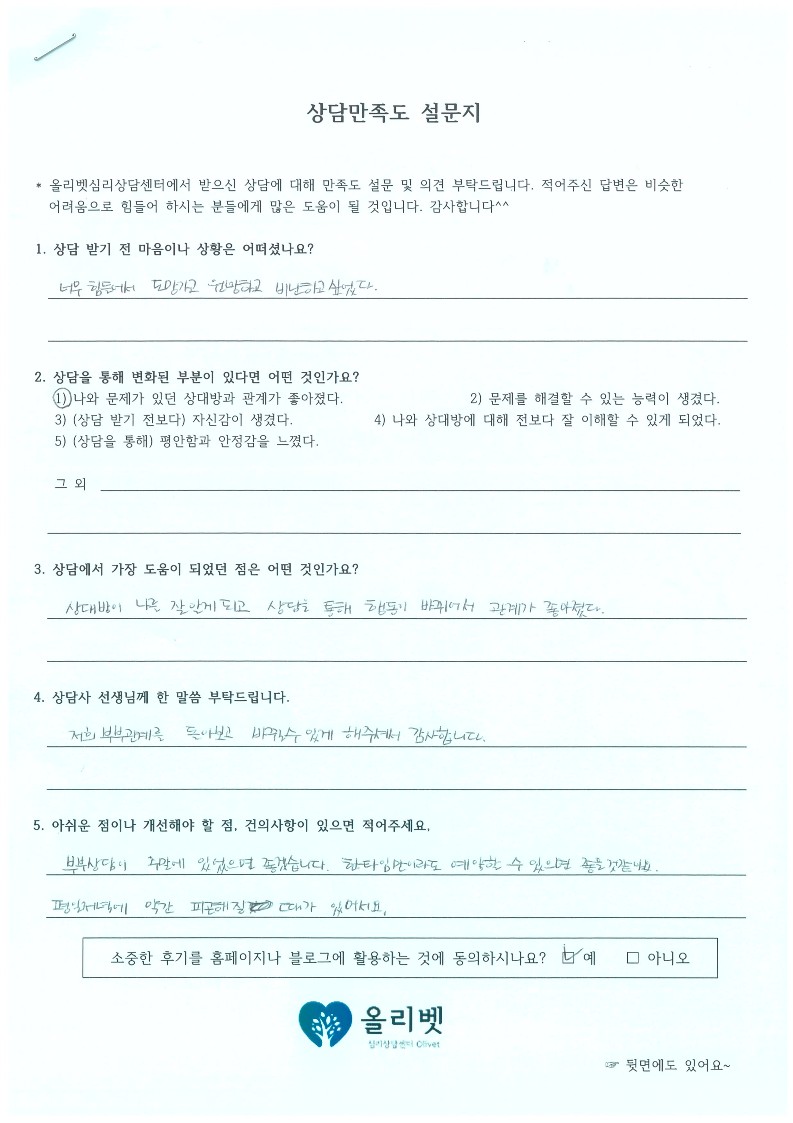 상담만족도 설문지
* 올리벳심리상담센터에서 받으신 상담에 대해 만족도 설문 및 의견 부탁드립니다. 적어주신 답변은 비슷한
어려움으로 힘들어 하시는 분들에게 많은 도움이 될 것입니다. 감사합니다^^
1. 상담 받기 전 마음이나 상황은 어떠셨나요?
너무 힘들어서 도망가고 원망하고 비난하고 싶었다.
2. 상담을 통해 변화된 부분이 있다면 어떤 것인가요?
1) 나와 문제가 있던 상대방과 관계가 좋아졌다. 2) 문제를 해결할 수 있는 능력이 생겼다.
3) (상담 받기 전보다) 자신감이 생겼다. 4) 나와 상대방에 대해 전보다 잘 이해할 수 있게 되었다.
5) (상담을 통해) 평안함과 안정감을 느꼈다.
그 외
3. 상담에서 가장 도움이 되었던 점은 어떤 것인가요?
상대방이 나를 잘 알게 되고 상담을 통해 행동이 바뀌어서 관계가 좋아졌다.
4. 상담사 선생님께 한 말씀 부탁드립니다.
저희 부부관계를 돌아보고 바뀔수 있게 해주셔서 감사합니다.
5. 아쉬운 점이나 개선해야 할 점, 건의사항이 있으면 적어주세요.
부부상담이 주말에 있었으면 좋겠습니다. 한타임만이라도 예약할 수 있으면 좋을것같아요.
평일저녁에 약간 피곤해질 때가 있어서요.
소중한 후기를 홈페이지나 블로그에 활용하는 것에 동의하시나요? ☑ 예 □ 아니오
올리벳
심리상담센터 Olivet
☞ 뒷면에도 있어요~